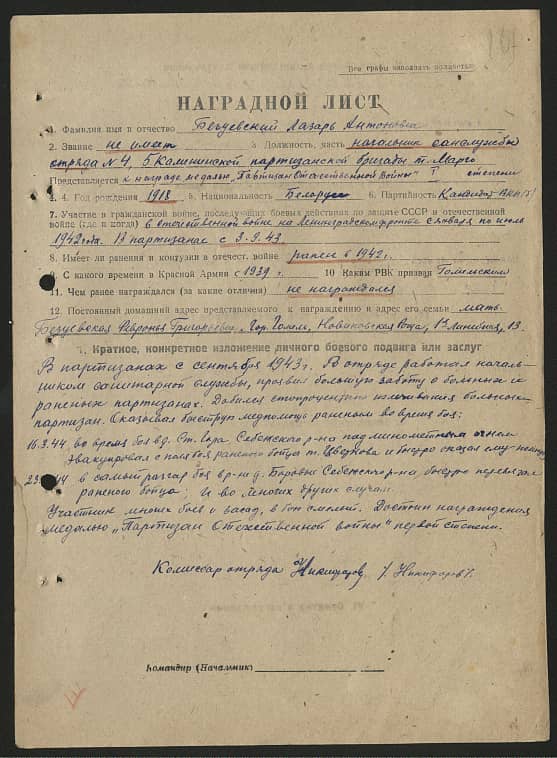 Все графы заполнять полностью
НАГРАДНОЙ ЛИСТ
1. Фамилия имя и отчество Безуевский Лазарь Антонович
2. Звание не имеет 3 Должность, часть начальник санслужбы
отряда №4, 5 Калининской партизанской бригады т. Марго
Представляется к награде медалью „Партизан Отечественной Войны" I степени
4. Год рождения 1918 5. Национальность Белорус 6. Партийность Кандидат ВКП/б/
7. Участие в гражданской войне, последующих боевых действиях по защите СССР и отечественной
войне (где и когда) в отечественной войне на Ленинградском фронте с января по июль
1942 года. В партизанах с 3.9.43.
8. Имеет ли ранения и контузии в отечест. войне ранен в 1942 г.
9. С какого времени в Красной Армии с 1939 г. 10 Каким РВК призван Гомельским
11. Чем ранее награждался (за какие отличия) не награждался
12. Постоянный домашний адрес представляемого к награждению и адрес его семьи мать
Безуевская Григорьевна, гор. Гомель, 1я линейная, 13
1. Краткое, конкретное изложение личного боевого подвига или заслуг
В партизанах с сентября 1943 г. В отряде работая началь-
ником санитарной службы, проявил большую заботу о больных и
раненых партизанах. Добился стопроцентного излечивания больных
партизан. Оказывал быструю медпомощь раненым во время боя:
16.3.44 во время боя в д. Ст. Гора Себежского р-на под минометным огнем
эвакуировал с поля боя раненого бойца т. Цветкова и быстро оказал ему помощь
в самый разгар боя в р-не д. Боровые Себежского р-на быстро перевязал
раненого бойца; и во многих других случаях.
Участник многих боев и засад, в бою смелый. Достоин награждения
медалью „Партизан Отечественной войны" первой степени.
Комиссар отряда Никифоров / Никифоров /.
Командир (Начальник)